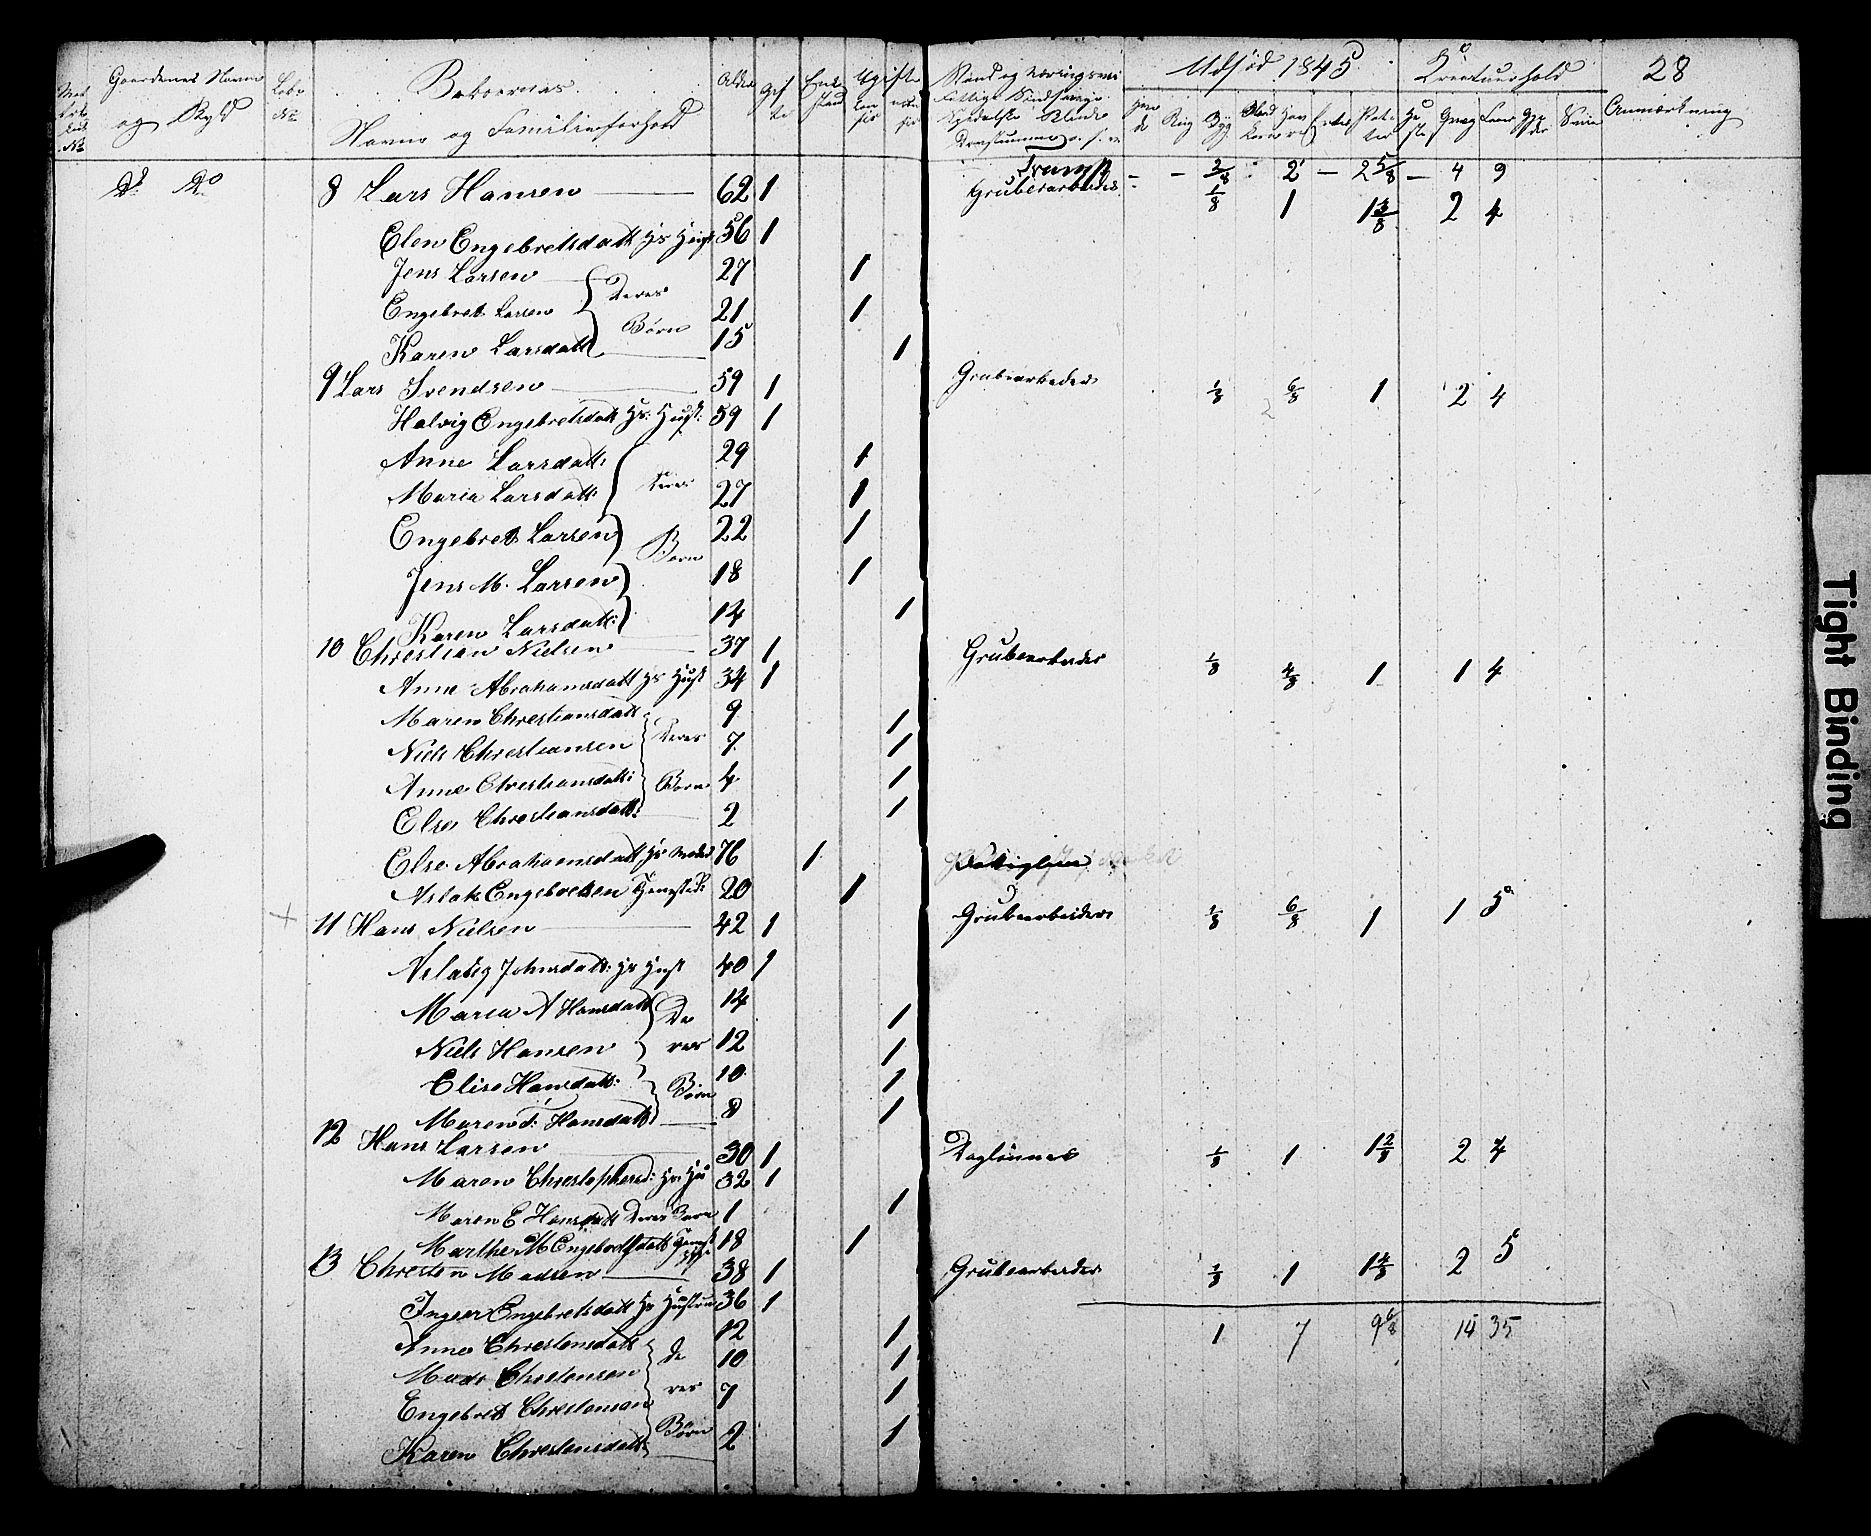 Gaardenes Navn og Skyld | Løbe No | Beboernes Navne og Familieforhold | Alder | Gifte | Enke stand | Ugifte | Udsæd 1845 | Kreaturhold | 28
Rug | Byg | Havre | Erter | Heste | Sviin | Anmærkning
Transp - - 3/8 2 - 2 5/8 - 4 9
Do Do 8 Lars Hansen 62 1 Grubearbeider 1/8 1 1 3/8 2 4
Elen Engebretsdatt Hs Hust 56 1
Jens Larsen 27 1
Engebret Larsen Deres 21 1
Karen Larsdatt Børn 15 1
9 Lars Svendsen 59 1 Grubearbeider 1/8 6/8 1 2 4
Helvig Engebretsdatt Hs: Hust: 59 1
Anne Larsdatt: 29 1
Maria Larsdatt: Deres 27 1
Engebret Larsen 22 1
Jens M. Larsen Børn 18 1
Karen Larsdatt: 14 1
10 Christian Nielsen 37 1 Grubearbeider 1/8 4/8 1 1 4
Anne Abrahamsdatt Hs Hust 34 1
Maren Christiansdatt. 9 1
Niels Christiansen Deres 7 1
Anne Christiansdatt: Børn 4 1
Else Christiansdatt: 2 1
Else Abrahamsdatt Hs Moder 76 1
Aslak Engebretsen 20 1
11 Hans Nielsen 42 1 Grubearbeider 1/8 6/8 1 1 5
Johnsdatt: Hs Hust 40 1
Maria A Hansdatt De 14 1
Niels Hansen res 12 1
Elise Hansdatt: Børn 10 1
Maren Hansdatt 8 1
12 Hans Larsen 30 1 Daglønner 1/8 1 1 2/8 2 4
Maren Christophersd: Hs: Hu 32 1
Maren E Hansdatt Deres Barn 1 1
Marthe M Engebretsdatt 18 1
13 Christen Madsen 38 1 Grubearbeider 1/8 1 2 5
Inger Engebretsdatt Hs Hustrue 36 1
Anne Christensdatt 12 1
Mads Christensen De 10 1
Engebret Christensen res 7 1
Karen Christensdatt Børn 2 1
1 7 9 6/8 14 35
Tight Binding